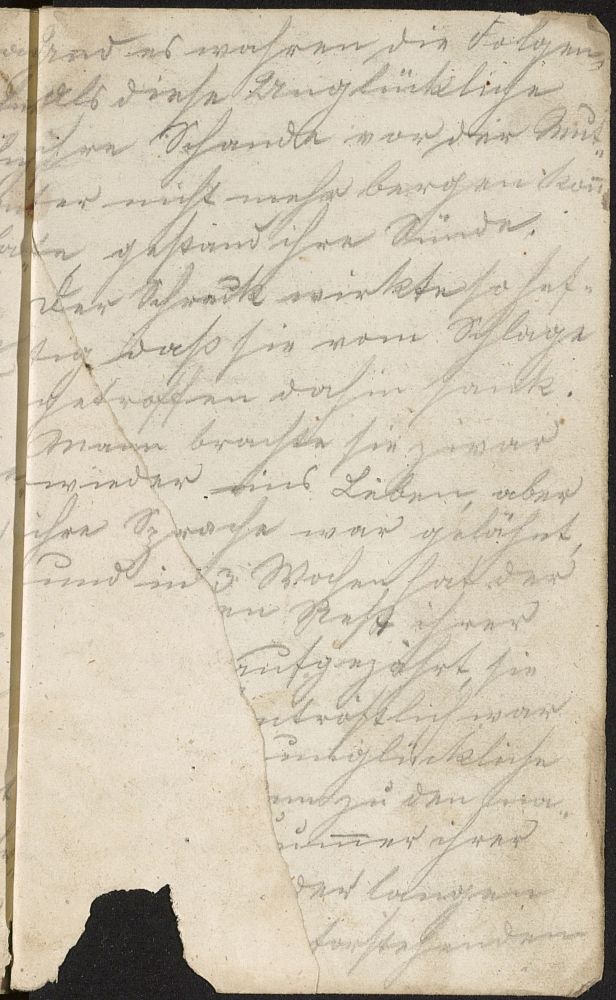 und es wahren die Folgen,
als diese Unglückliche
ihre Schande vor der Mut=
ter nicht mehr bergen kon̄
te gestand ihre Sünde.
Der Schreck wirkte so hef=
tig daß sie vom Schlage
getroffen dahin sank.
Mann brachte sie zwar
wieder ins Leben, aber
ihre Sprache war gelähmt,
und in 3 Wochen hat der
en Rest ihrer
aufgezährt, sie
ntröstlich war
unglückliche
zu den
ummer ihrer
der langen